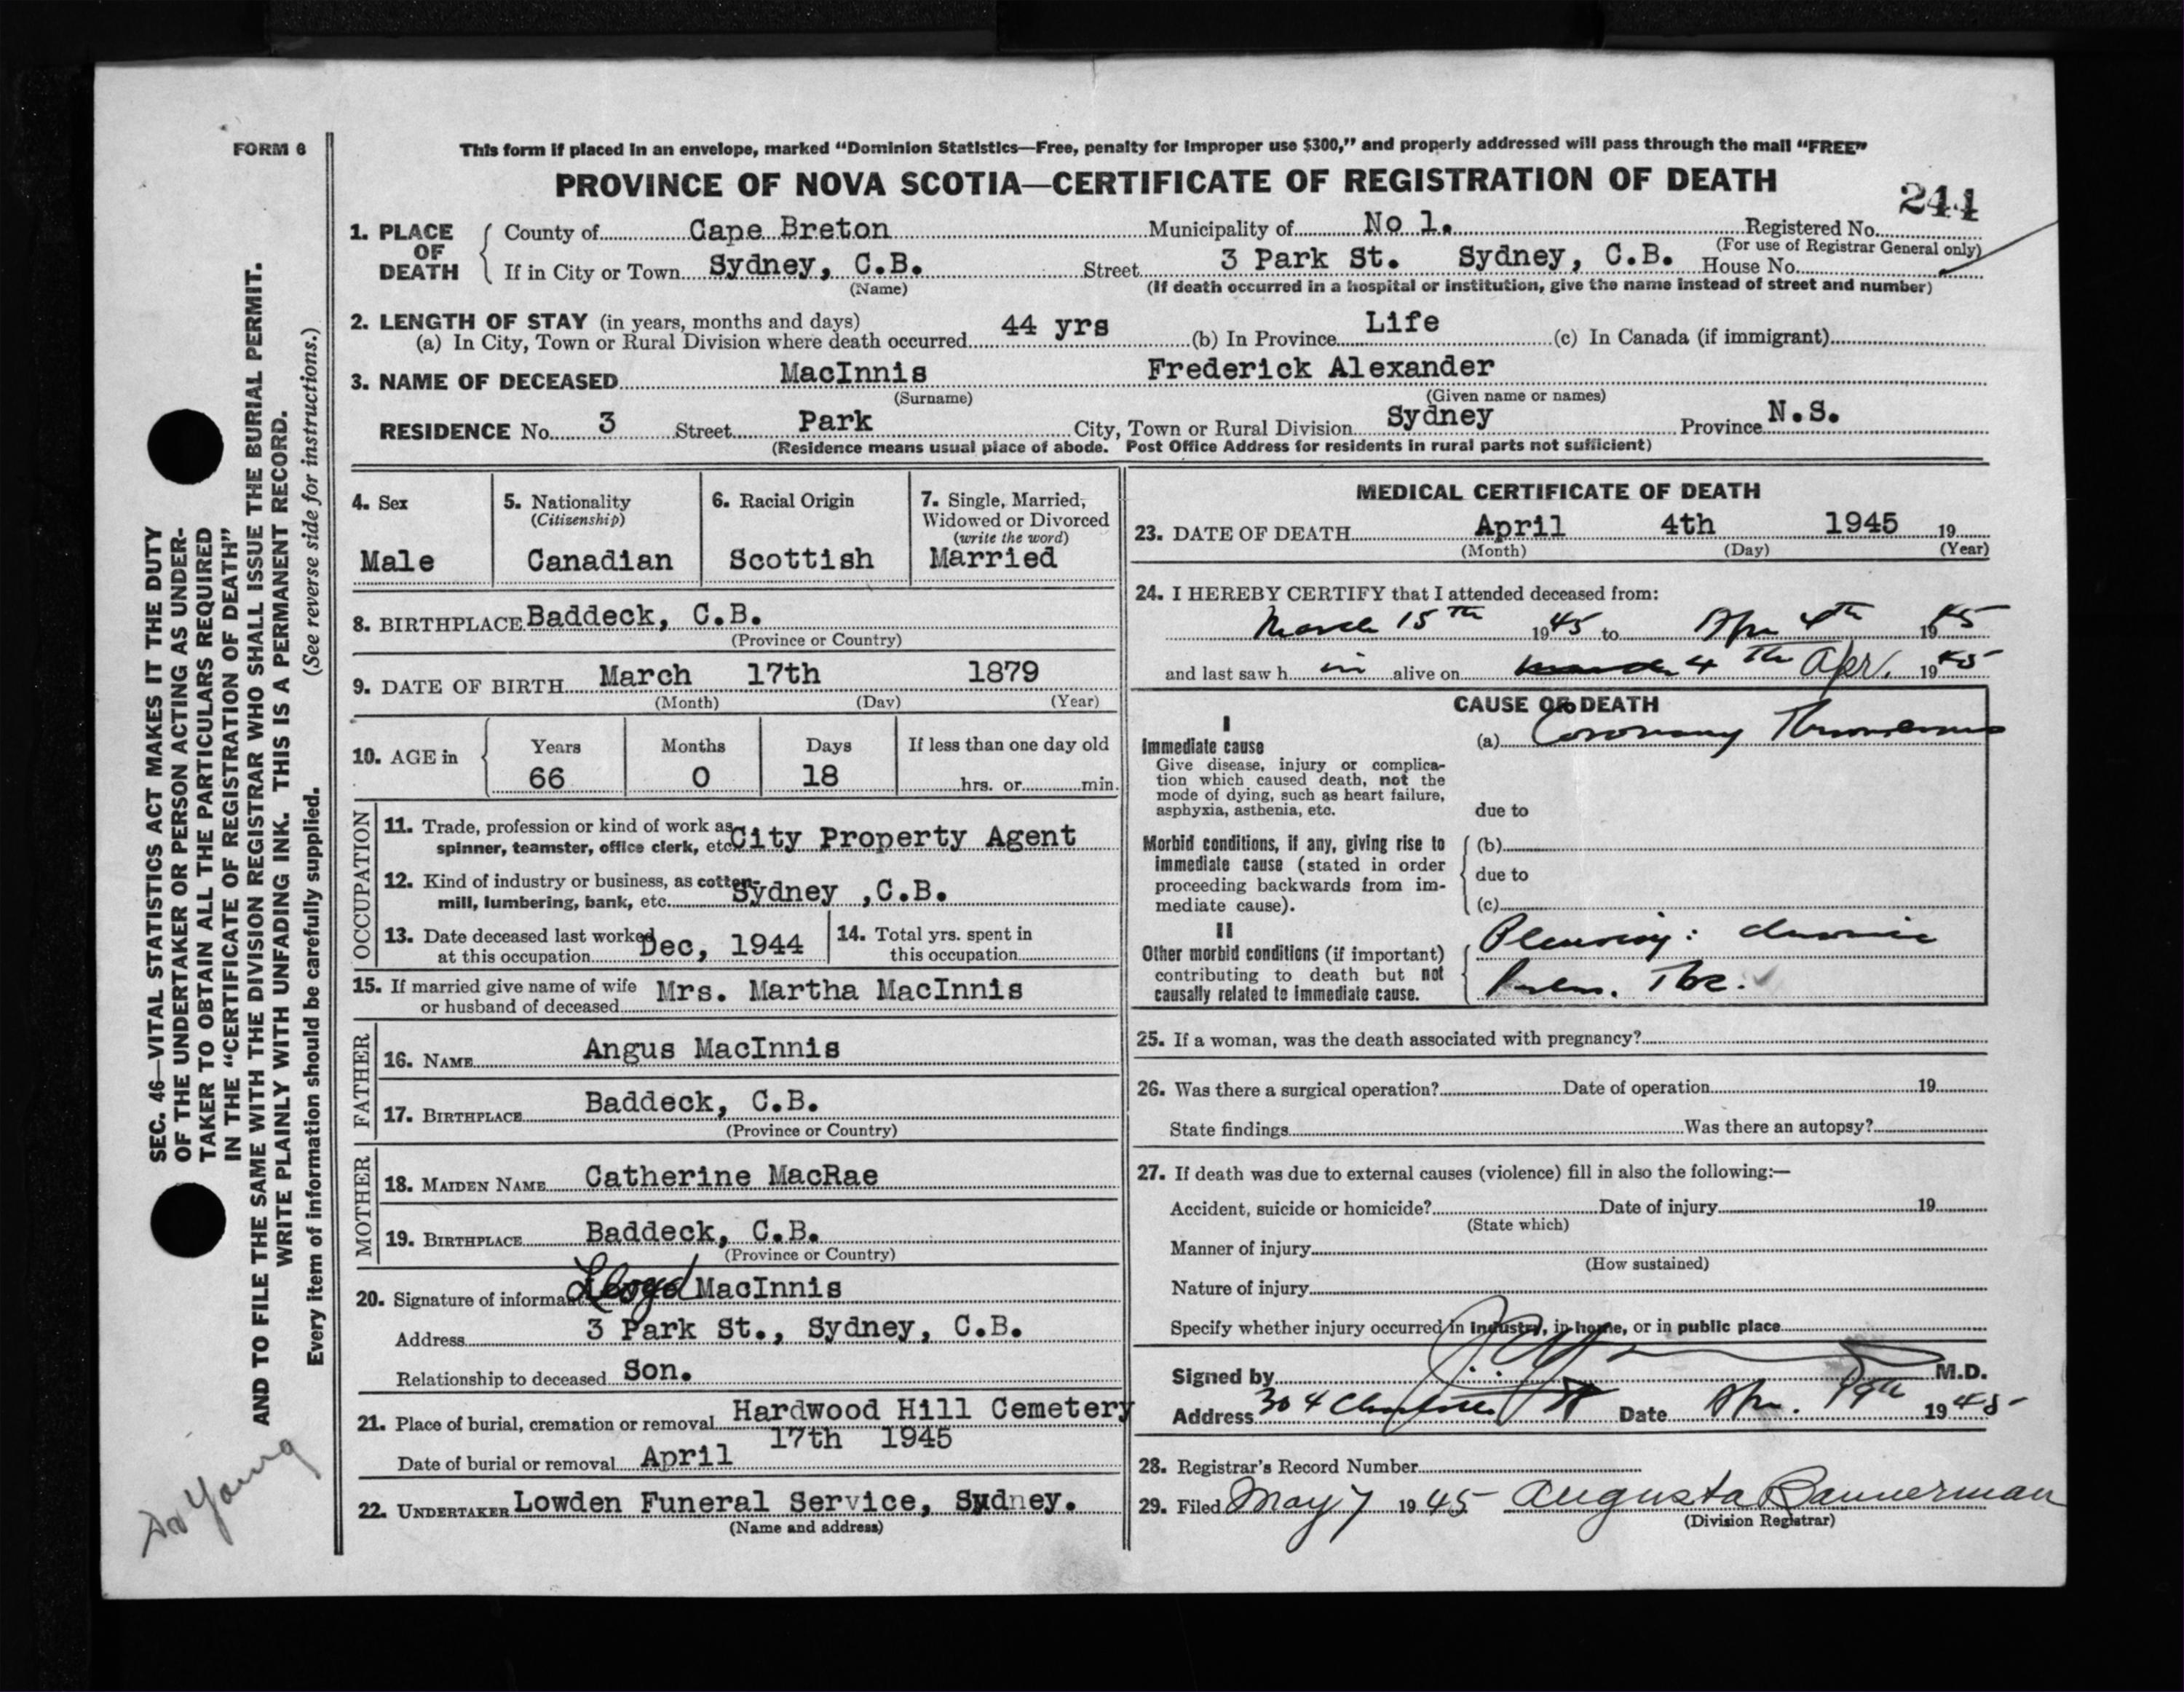 FORM 6
This form if placed in an envelope, marked “Dominion Statistics—Free, penalty for improper use $300,” and properly addressed will pass through the mail “FREE”
PROVINCE OF NOVA SCOTIA—CERTIFICATE OF REGISTRATION OF DEATH
244
1. PLACE OF DEATH
County of Cape Breton Municipality of No 1. Registered No.
(For use of Registrar General only)
If in City or Town Sydney, C.B. Street 3 Park St. Sydney, C.B. House No.
(Name) (If death occurred in a hospital or institution, give the name instead of street and number)
2. LENGTH OF STAY (in years, months and days)
(a) In City, Town or Rural Division where death occurred 44 yrs (b) In Province Life (c) In Canada (if immigrant)
3. NAME OF DECEASED MacInnis Frederick Alexander
(Surname) (Given name or names)
RESIDENCE No. 3 Street Park City, Town or Rural Division Sydney Province N.S.
(Residence means usual place of abode. Post Office Address for residents in rural parts not sufficient)
4. Sex
Male
5. Nationality
(Citizenship)
Canadian
6. Racial Origin
Scottish
7. Single, Married,
Widowed or Divorced
(write the word)
Married
8. BIRTHPLACE Baddeck, C.B.
(Province or Country)
9. DATE OF BIRTH March 17th 1879
(Month) (Day) (Year)
10. AGE in
Years Months Days If less than one day old
66 0 18 hrs. or min.
OCCUPATION
11. Trade, profession or kind of work as
spinner, teamster, office clerk, etc. City Property Agent
12. Kind of industry or business, as cotton-
mill, lumbering, bank, etc. Sydney ,C.B.
13. Date deceased last worked
at this occupation Dec, 1944
14. Total yrs. spent in
this occupation
15. If married give name of wife
or husband of deceased Mrs. Martha MacInnis
FATHER
16. NAME Angus MacInnis
17. BIRTHPLACE Baddeck, C.B.
(Province or Country)
MOTHER
18. MAIDEN NAME Catherine MacRae
19. BIRTHPLACE Baddeck, C.B.
(Province or Country)
20. Signature of informant Lloyd MacInnis
Address 3 Park St., Sydney, C.B.
Relationship to deceased Son.
21. Place of burial, cremation or removal Hardwood Hill Cemetery
Date of burial or removal April 17th 1945
22. UNDERTAKER Lowden Funeral Service, Sydney.
(Name and address)
MEDICAL CERTIFICATE OF DEATH
23. DATE OF DEATH April 4th 1945 19
(Month) (Day) (Year)
24. I HEREBY CERTIFY that I attended deceased from:
March 15th 1945 to Apr 4th 1945
and last saw h im alive on 4th Apr. 1945
CAUSE OF DEATH
I
Immediate cause
Give disease, injury or complica-
tion which caused death, not the
mode of dying, such as heart failure,
asphyxia, asthenia, etc.
(a) Coronary Thrombosis
due to
Morbid conditions, if any, giving rise to
immediate cause (stated in order
proceeding backwards from im-
mediate cause).
(b)
due to
(c)
II
Other morbid conditions (if important)
contributing to death but not
causally related to immediate cause.
Pleurisy: chronic
Pulm. Tbc.
25. If a woman, was the death associated with pregnancy?
26. Was there a surgical operation? Date of operation 19
State findings Was there an autopsy?
27. If death was due to external causes (violence) fill in also the following:—
Accident, suicide or homicide? Date of injury 19
(State which)
Manner of injury
(How sustained)
Nature of injury
Specify whether injury occurred in industry, in home, or in public place
Signed by M.D.
Address 304 Charlotte St Date Apr. 19th 1945
28. Registrar's Record Number
29. Filed May 7 1945 Augusta Bannerman
(Division Registrar)
SEC. 46—VITAL STATISTICS ACT MAKES IT THE DUTY
OF THE UNDERTAKER OR PERSON ACTING AS UNDER-
TAKER TO OBTAIN ALL THE PARTICULARS REQUIRED
IN THE “CERTIFICATE OF REGISTRATION OF DEATH”
AND TO FILE THE SAME WITH THE DIVISION REGISTRAR WHO SHALL ISSUE THE BURIAL PERMIT.
WRITE PLAINLY WITH UNFADING INK. THIS IS A PERMANENT RECORD.
Every item of information should be carefully supplied. (See reverse side for instructions.)
Dr Young